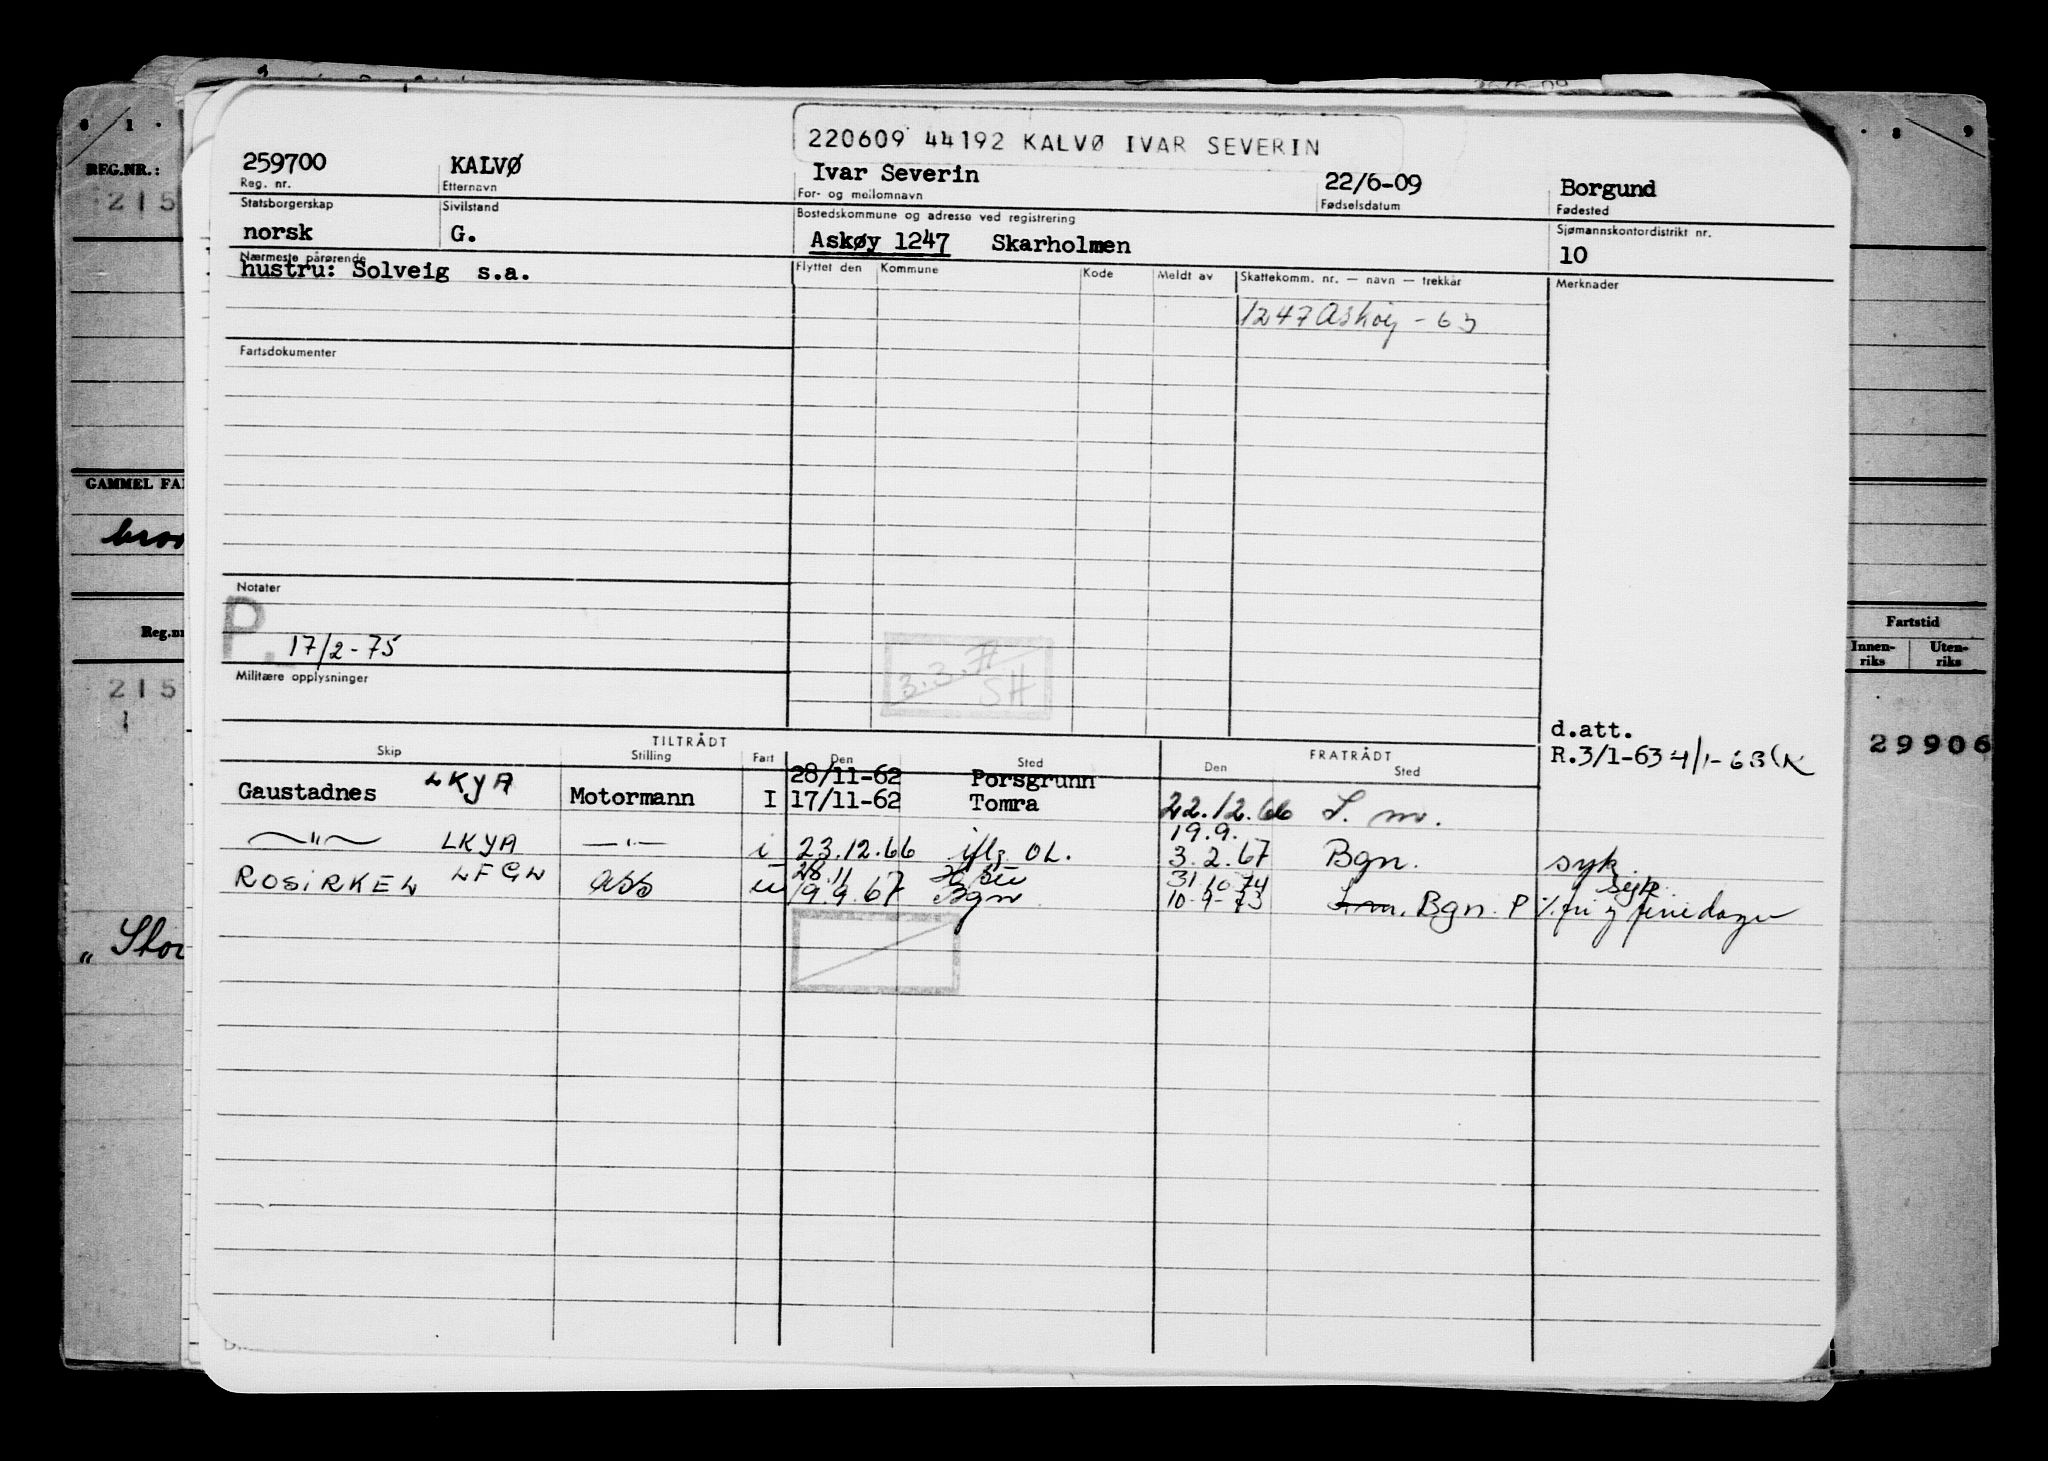 220609 44192 KALVØ IVAR SEVERIN
259700 KALVØ Ivar Severin 22/6-09 Borgund
Reg. nr. Etternavn For- og mellomnavn Fødselsdatum Fødested
Statsborgerskap Sivilstand Bostedskommune og adresse ved registrering Sjømannskontordistrikt nr.
norsk G. Askøy 1247 Skarholmen 10
Nærmeste pårørende Flyttet den Kommune Kode Meldt av Skattekomm. nr. — navn — trekkår Merknader
hustru: Solveig s.a.
1247 Askøy - 63
Fartsdokumenter
Notater
P.
17/2-75
3.3.71
SH
Militære opplysninger
d.att.
R.3/1-63 4/1-63
TILTRÅDT FRATRÅDT
Skip Stilling Fart Den Sted Den Sted
28/11-62 Porsgrunn
Gaustadnes LKYA Motormann I 17/11-62 Tomra 22.12.66 S. m.
19.9.
—"— LKYA —"— i 23.12.66 iflg OL. 3.2.67 Bgn. syk.
28.11 31.10.74 syk.
ROSIRKEL LFGL ass u 19.9.67 Bgn 10-9-73 Bgn. P
REG.NR.:
215
GAMMEL FA
Reg.nr
215
1
„ Stor
Fartstid
Innen-riks Uten-riks
29906